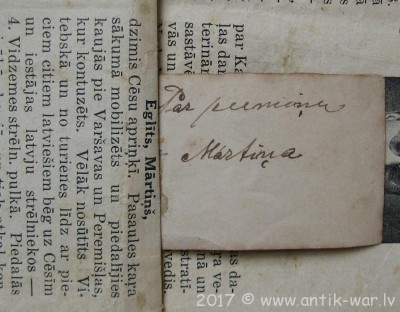 Eglīts, Mārtiņš,
dzimis Cēsu apriņķī. Pasaules kaŗa
sākumā mobilizēts un piedalījies
kaujās pie Varšavas un Peremišļas,
kur kontuzēts. Vēlāk nosūtīts Vi-
tebskā un no turienes līdz ar pie-
ciem citiem latviešiem bēg uz Cēsīm
un iestājas latvju strēlniekos —
4. Vidzemes strēln. pulkā. Piedalās
Par peemiņu
Mārtiņa
par Ka
sastāvē
terinār
vās un
as da-
ve-
un
strati-
vedis.
2017 © www.antik-war.lv